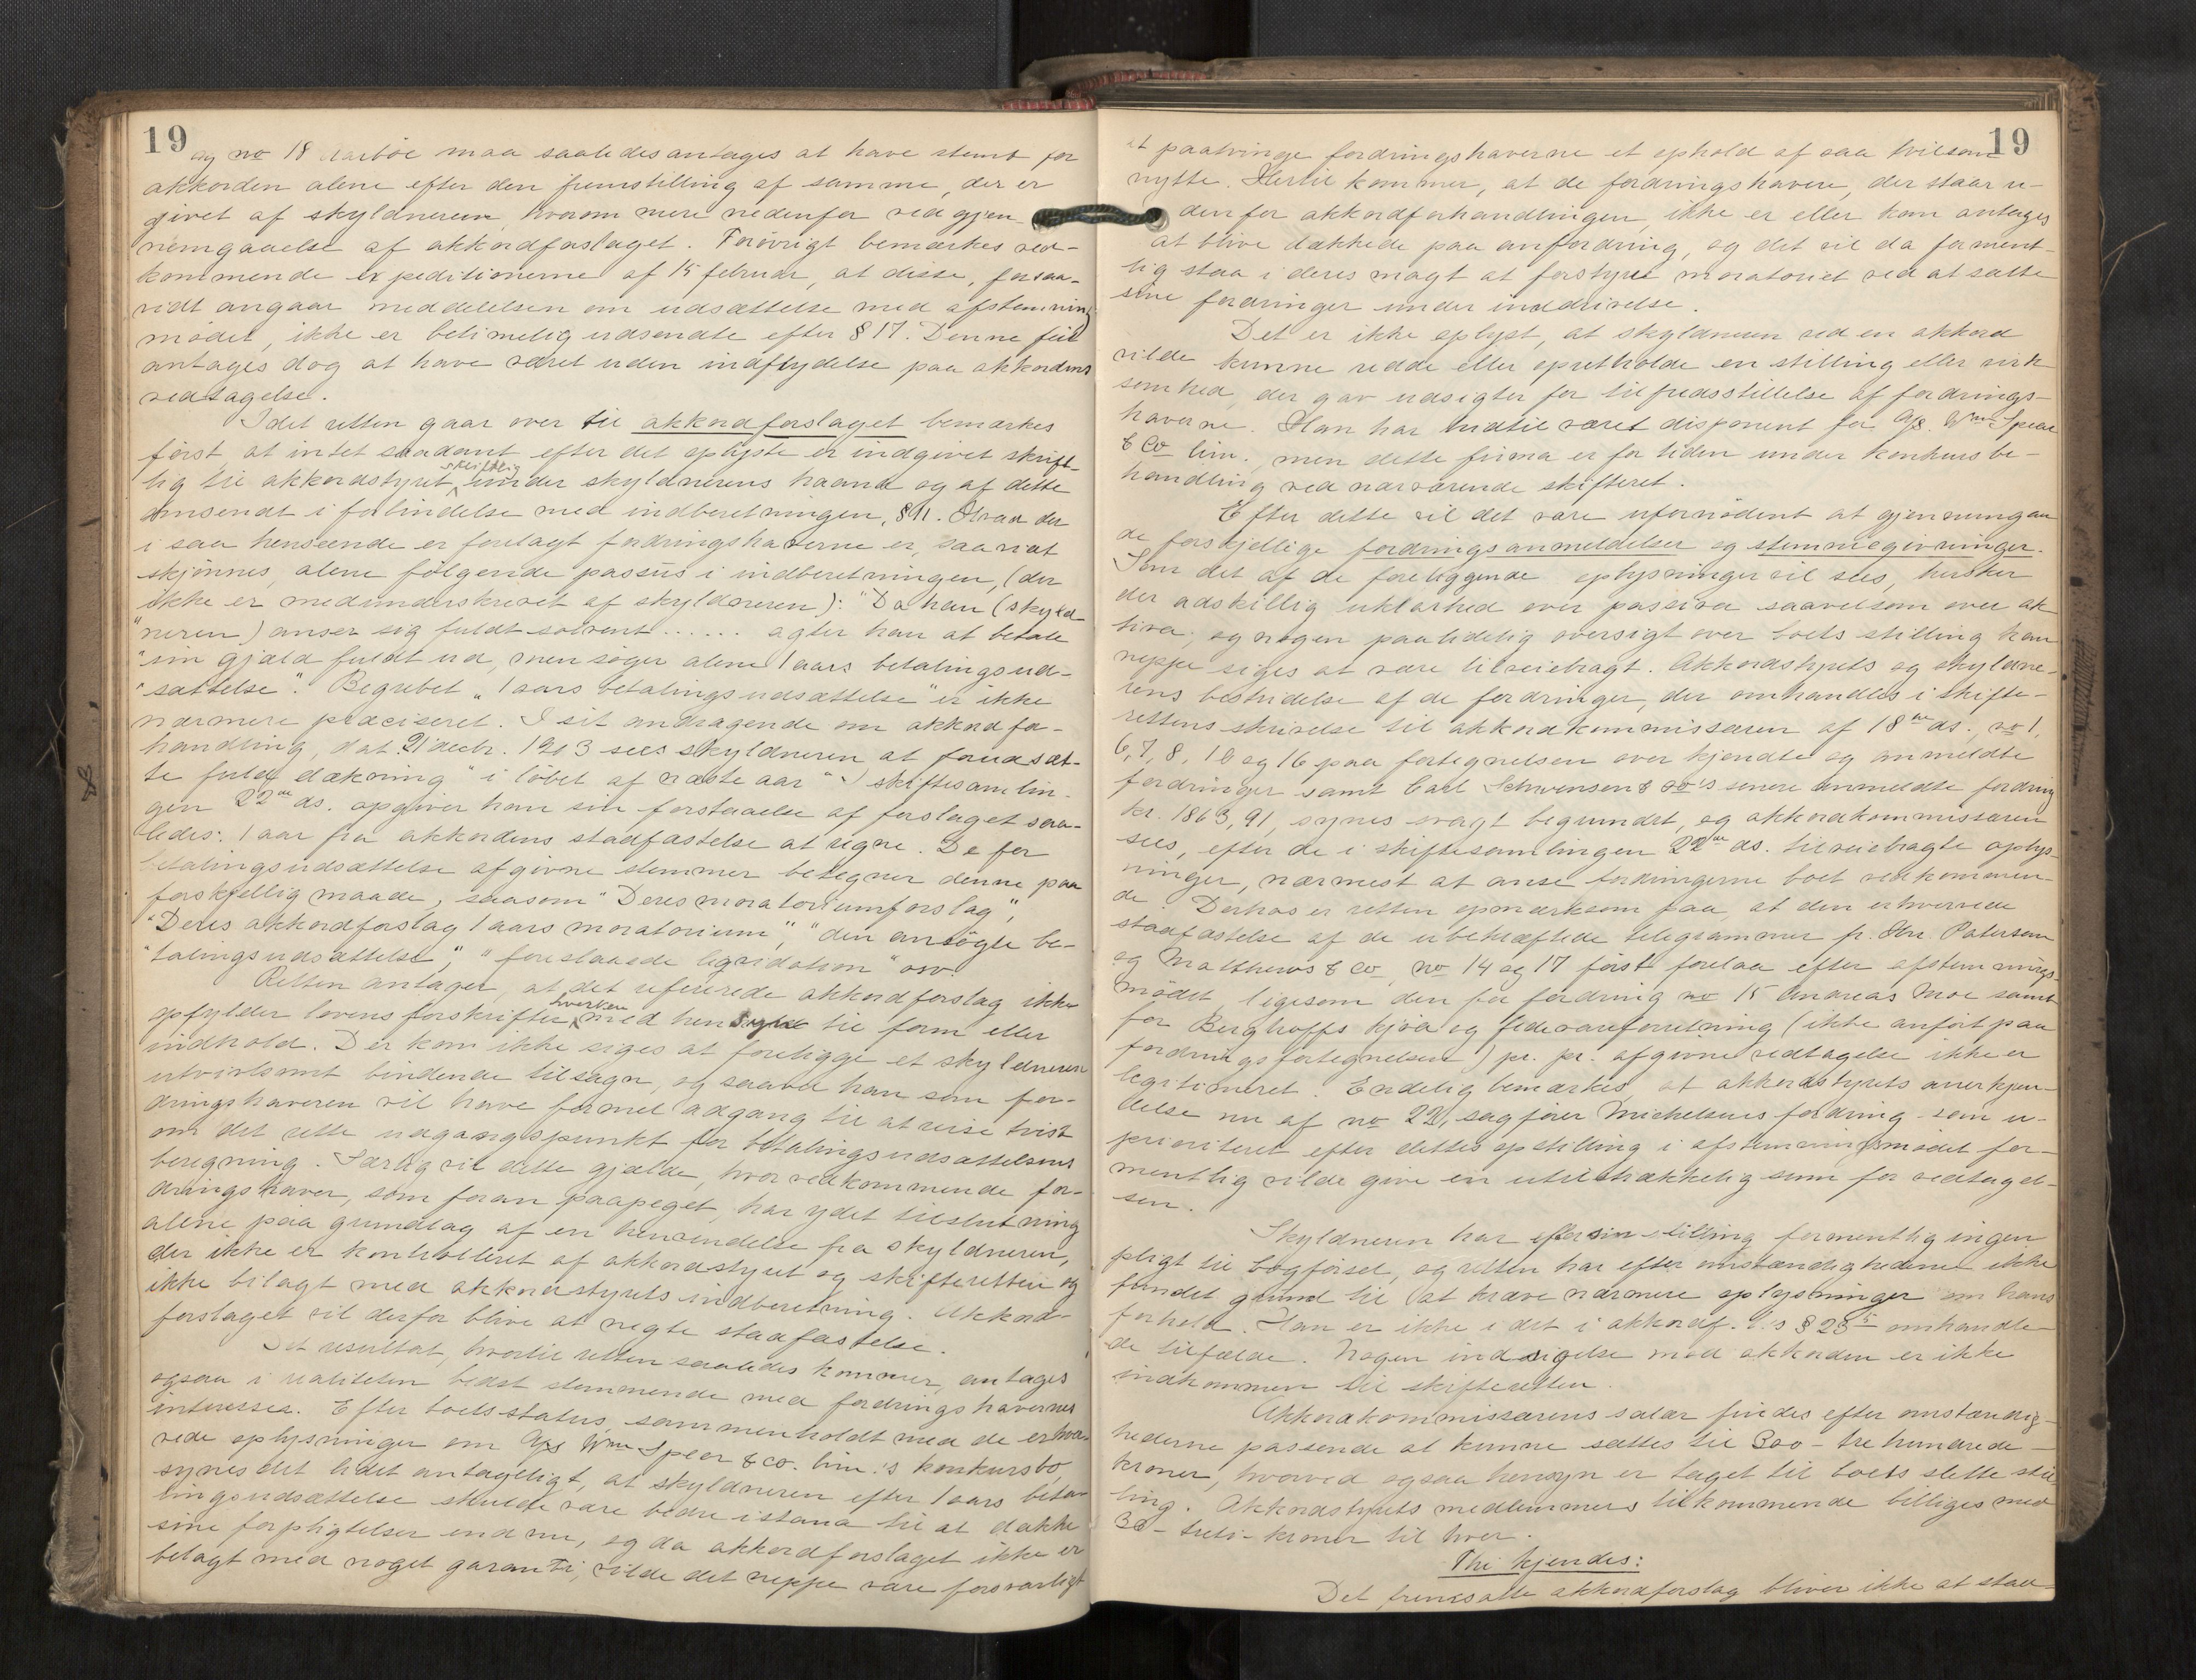 19
og no 18 Aarböe maa saaledes antages at have stemt for
akkorden alene efter den fremstilling af samme, der er
givet af skyldneren, hvorom mere nedenfor ved gjen-
nemgaaelse af akkordforslaget. Forövrigt bemærkes ved-
kommende expeditionerne af 15 februar, at disse, forsaa-
vidt angaar meddelelsen om udsættelse med afstemning
mödet, ikke er betimelig udsendte efter § 17. Denne feil
antages dog at have været uden indflydelse paa akkordens
vedtagelse.
Idet retten gaar over til akkordforslaget bemærkes
först, at intet saadant efter det oplyste er indgivet skrift-
lig til akkordstyret skriftlig under skyldnerens haand og af dette
omsendt i forbindelse med indberetningen, § 11. Hvad der
i saa henseende er forelagt fordringshaverne er, saavidt
skjönnes, alene fölgende passus i indberetningen, (der
ikke er medunderskrevet af skyldneren): "Da han (skyld
"neren) anser sig fuldt solvent ...... agter han at betale
"sin gjæld fuldt ud, men söger alene 1 aars betalingsud-
"sættelse". Begrebet "1 aars betalingsudsættelse" er ikke
nærmere præciseret. I sit andragende om akkordfor-
handling, dat. 21 decbr. 1903 sees skyldneren at forudsæt-
te fuld dækning "i löbet af næste aar". I skiftesamlin-
gen 22de ds. opgiver han sin forstaaelse af forslaget saa-
ledes: 1 aar fra akkordens stadfæstelse at regne. De for
betalingsudsættelse afgivne stemmer betegner denne paa
forskjellig maade, saasom "Deres moratoriumforslag",
"Deres akkordforslag 1 aars moratorium", "den ansögte be-
"talingsudsættelse", "foreslaaede liqvidation" osv.
Retten antager, at det refererede akkordforslag ikke
opfylder lovens forskrifter hverken med hensyn til form eller
indhold. Der kan ikke siges at foreligge et skyldneren
utvivlsomt bindende tilsagn, og saavel han som for-
dringshaveren vil have formel adgang til at reise tvist
om det rette udgangspunkt for betalingsudsættelsens
beregning. Særlig vil dette gjælde, hvor vedkommende for-
dringshaver, som foran paapeget, har ydet tilslutning
alene paa grundlag af en henvendelse fra skyldneren,
der ikke er kontrolleret af akkordstyret og skifteretten og
ikke bilagt med akkordstyrets indberetning. Akkord-
forslaget vil derfor blive at negte stadfæstelse.
Det resultat, hvortil retten saaledes kommer, antages
ogsaa i realiteten bedst stemmende med fordringshavernes
interesser. Efter boets status, sammenholdt med de erhver-
vede oplysninger om A/S Wm Speer & co. lim.'s konkursbo,
synes det lidet antageligt, at skyldneren efter 1 aars beta-
lingsudsættelse skulde være bedre istand til at dække
sine forpligtelser end nu, og da akkordforslaget ikke er
belagt med noget garanti, vilde det neppe være forsvarligt
19
at paatvinge fordringshaverne et ophold af saa tvilsom
nytte. Hertil kommer, at de fordringshavere, der staar u-
denfor akkordforhandlingen, ikke er eller kan antages
at blive dækkede paa anfordring, og det vil da forment-
lig staa i deres magt at forstyrre moratoriet ved at sætte
sine fordringer under inddrivelse.
Det er ikke oplyst, at skyldneren ved en akkord
vilde kunne redde eller opretholde en stilling eller virk
somhed, der gav udsigter for tilfredsstillelse af fordrings-
haverne. Han har indtil været disponent for A/S. Wm Speer
& Co lim., men dette firma er for tiden under konkursbe-
handling ved nærværende skifteret.
Efter dette vil det være ufornödent at gjennemgaa
de forskjellige fordringsanmeldelser og stemmegivninger.
Som det af de foreliggende oplysninger vil sees, hersker
der adskillig uklarhed over passiva saavelsom over ak
tiva, og nogen paalidelig oversigt over boets stilling kan
neppe siges at være tilveiebragt. Akkordstyrets og skyldne-
rens bestridelse af de fordringer, der omhandles i skifte-
rettens skrivelse til akkordkommissæren af 18de ds., no 1,
6, 7, 8, 10 og 16 paa fortegnelsen over kjendte og anmeldte
fordringer samt Carl Schwensen & co's senere anmeldte fordring
kr. 1863,91, synes svagt begrundet, og akkordkommissæren
sees, efter de i skiftesamlingen 22de ds. tilveiebragte oplys-
ninger, nærmest at anse fordringerne boet vedkommen-
de. Derhos er retten opmærksom paa, at den erhvervede
stadfæstelse af de ubekræftede telegrammer fr. Hre Paterson
og Matthews & Co, no 14 og 17 först forelaa efter afstemnings-
mödet, ligesom den for fordring no 15 Andreas Moe samt
for Berghoffs kjöd og fedevareforretning (ikke anfört paa
fordringsfortegnelsen) pr. pr. afgivne vedtagelse ikke er
legitimeret. Endelig bemærkes, at akkordstyrets anerkjen-
delse nu af no 22, sagförer Michelsens fordring som u-
prioriteret efter dettes opstilling i afstemningsmödet for-
mentlig vilde give en utilstrækkelig sum for vedtagel-
sen.
Skyldneren har efter sin stilling formentlig ingen
pligt til bogförsel, og retten har efter omstændighederne ikke
fundet grund til at kræve nærmere oplysninger om hans
forhold. Han er ikke i det i akkordf. l.'s § 23 omhandle-
de tilfælde. Nogen indsigelse mod akkorden er ikke
indkommen til skifteretten.
Akkordkommissærens salær findes efter omstændig-
hederne passende at kunne sættes til 300 - tre hundrede -
kroner, hvorved ogsaa hensyn er taget til boets slette stil
ling. Akkordstyrets medlemmers tilkommende billiges med
30 - treti - kroner til hver.
Thi kjendes:
Det fremsatte akkordforslag bliver ikke at stad-